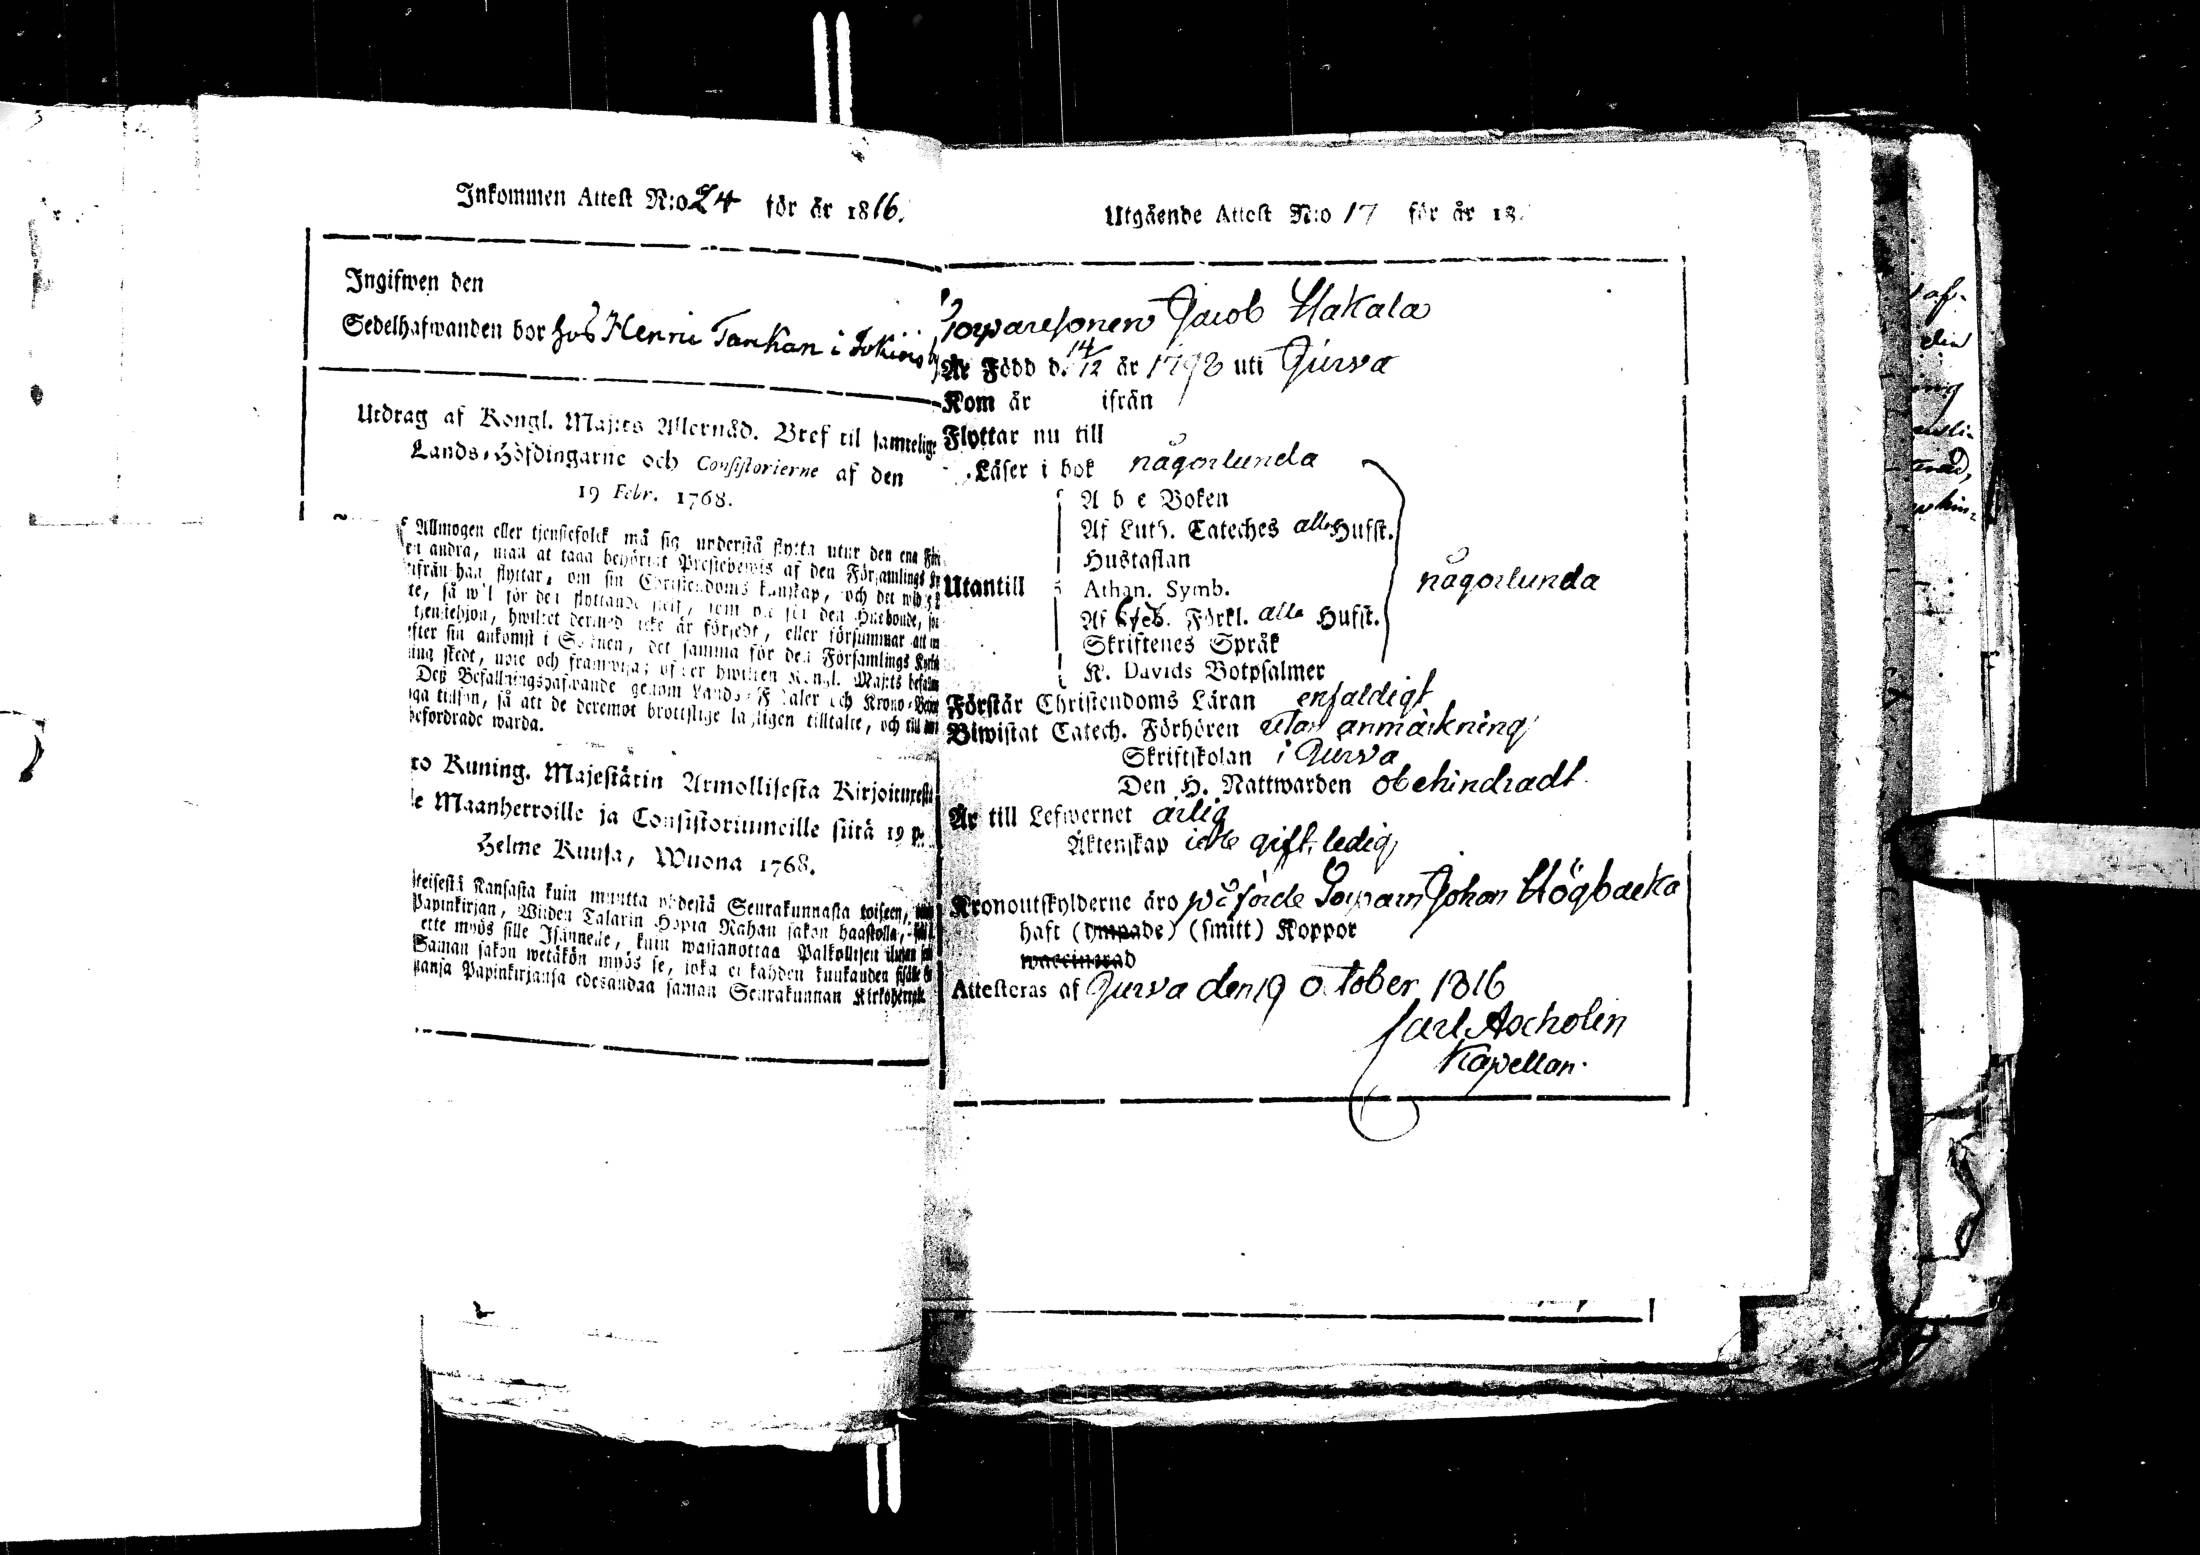 Inkommen Attest N:o 24 för år 1816.
Ingifwen den
Sedelhafwanden bor hos Henric Tankan i Jokiris by
Utdrag af Kongl. Maj:ts Allernåd. Bref til samtelige
Lands-Höfdingarne och Consistorierne af den
19 Febr. 1768.
Allmogen eller tjenstefolck må sig understå flytta utur den ena
andra, utan at taga behörigt Prestebewis af den Församlings
ifrån han flyttar, om sin Christendoms kunskap, och det wid
te, så wäl för den flyttande sielf, som för den Husbonde,
tjenstehjon, hwilcket dermed icke är försedt, eller försummar att
efter sin ankomst i Socknen, det samma för den Församlings
skedt, upte och framwisa; hwilken Kongl. Maj:ts
Deß Befallningshafwande genom Lands-Fiscaler och Krono-
tilsyn, så att de deremot brottslige lagligen tilltalte, och till
befordrade warda.
Kuning. Majestätin Armollisesta Kirjoituxesta
Maanherroille ja Consistoriumeille siitä 19 p.
Helme Kuusa, Wuona 1768.
Kansasta kuin muutta yhdestä Seurakunnasta toiseen,
Papinkirjan, Wiiden Talarin Hopia Rahan sakon haastolla,
ette myös sille Isännelle, kuin wastanottaa Palkollisen ilman
Saman sakon wetäkön myös se, joka ei kahden kuukauden sisälle
Papinkirjansa edesandaa saman Seurakunnan Kirkoherralle
Utgående Attest N:o 17 för år 18
Torparesonen Jacob Hakala
Är Född d. 14/12 år 1793 uti Jurva
Kom år ifrån
Flyttar nu till
Läser i bok någorlunda
A b c Boken
Af Luth. Cateches alla Hufst.
Hustaflan
Utantill Athan. Symb. någorlunda
Af Sveb. Förkl. alla Hufst.
Skriftenes Språk
K. Davids Botpsalmer
Förstår Christendoms Läran enfaldigt
Biwistat Catech. Förhören utan anmärkning
Skriftskolan i Jurva
Den H. Nattwarden obehindradt
Är till Lefwernet ärlig
Äktenskap icke gift, ledig
Kronoutskylderne äro påförde Torparn Johan Högbacka
haft (ympade) (smitt) Koppor
waccinerad
Attesteras af Jurva den 19 October 1816
Carl Ascholin
Kapellan.